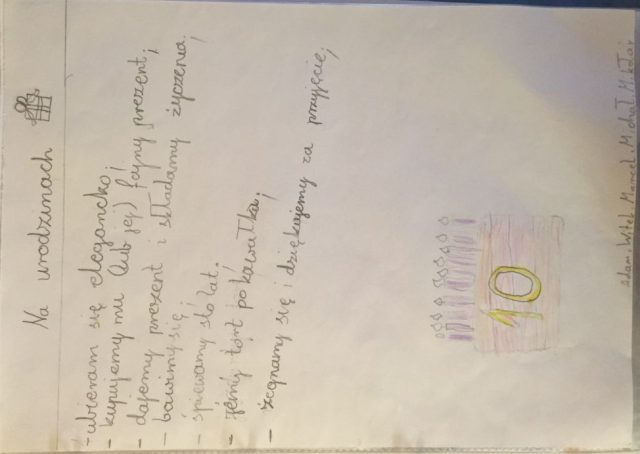 Na urodzinach
- ubieram się elegancko,
- kupujemy mu (lub jej) fajny prezent,
- dajemy prezent i składamy życzenia,
- bawimy się,
- śpiewamy sto lat.
- jemy tort po kawałku,
- żegnamy się i dziękujemy za przyjęcie,
10
Adam. Witek. Marcel. Michał. Mikołaj